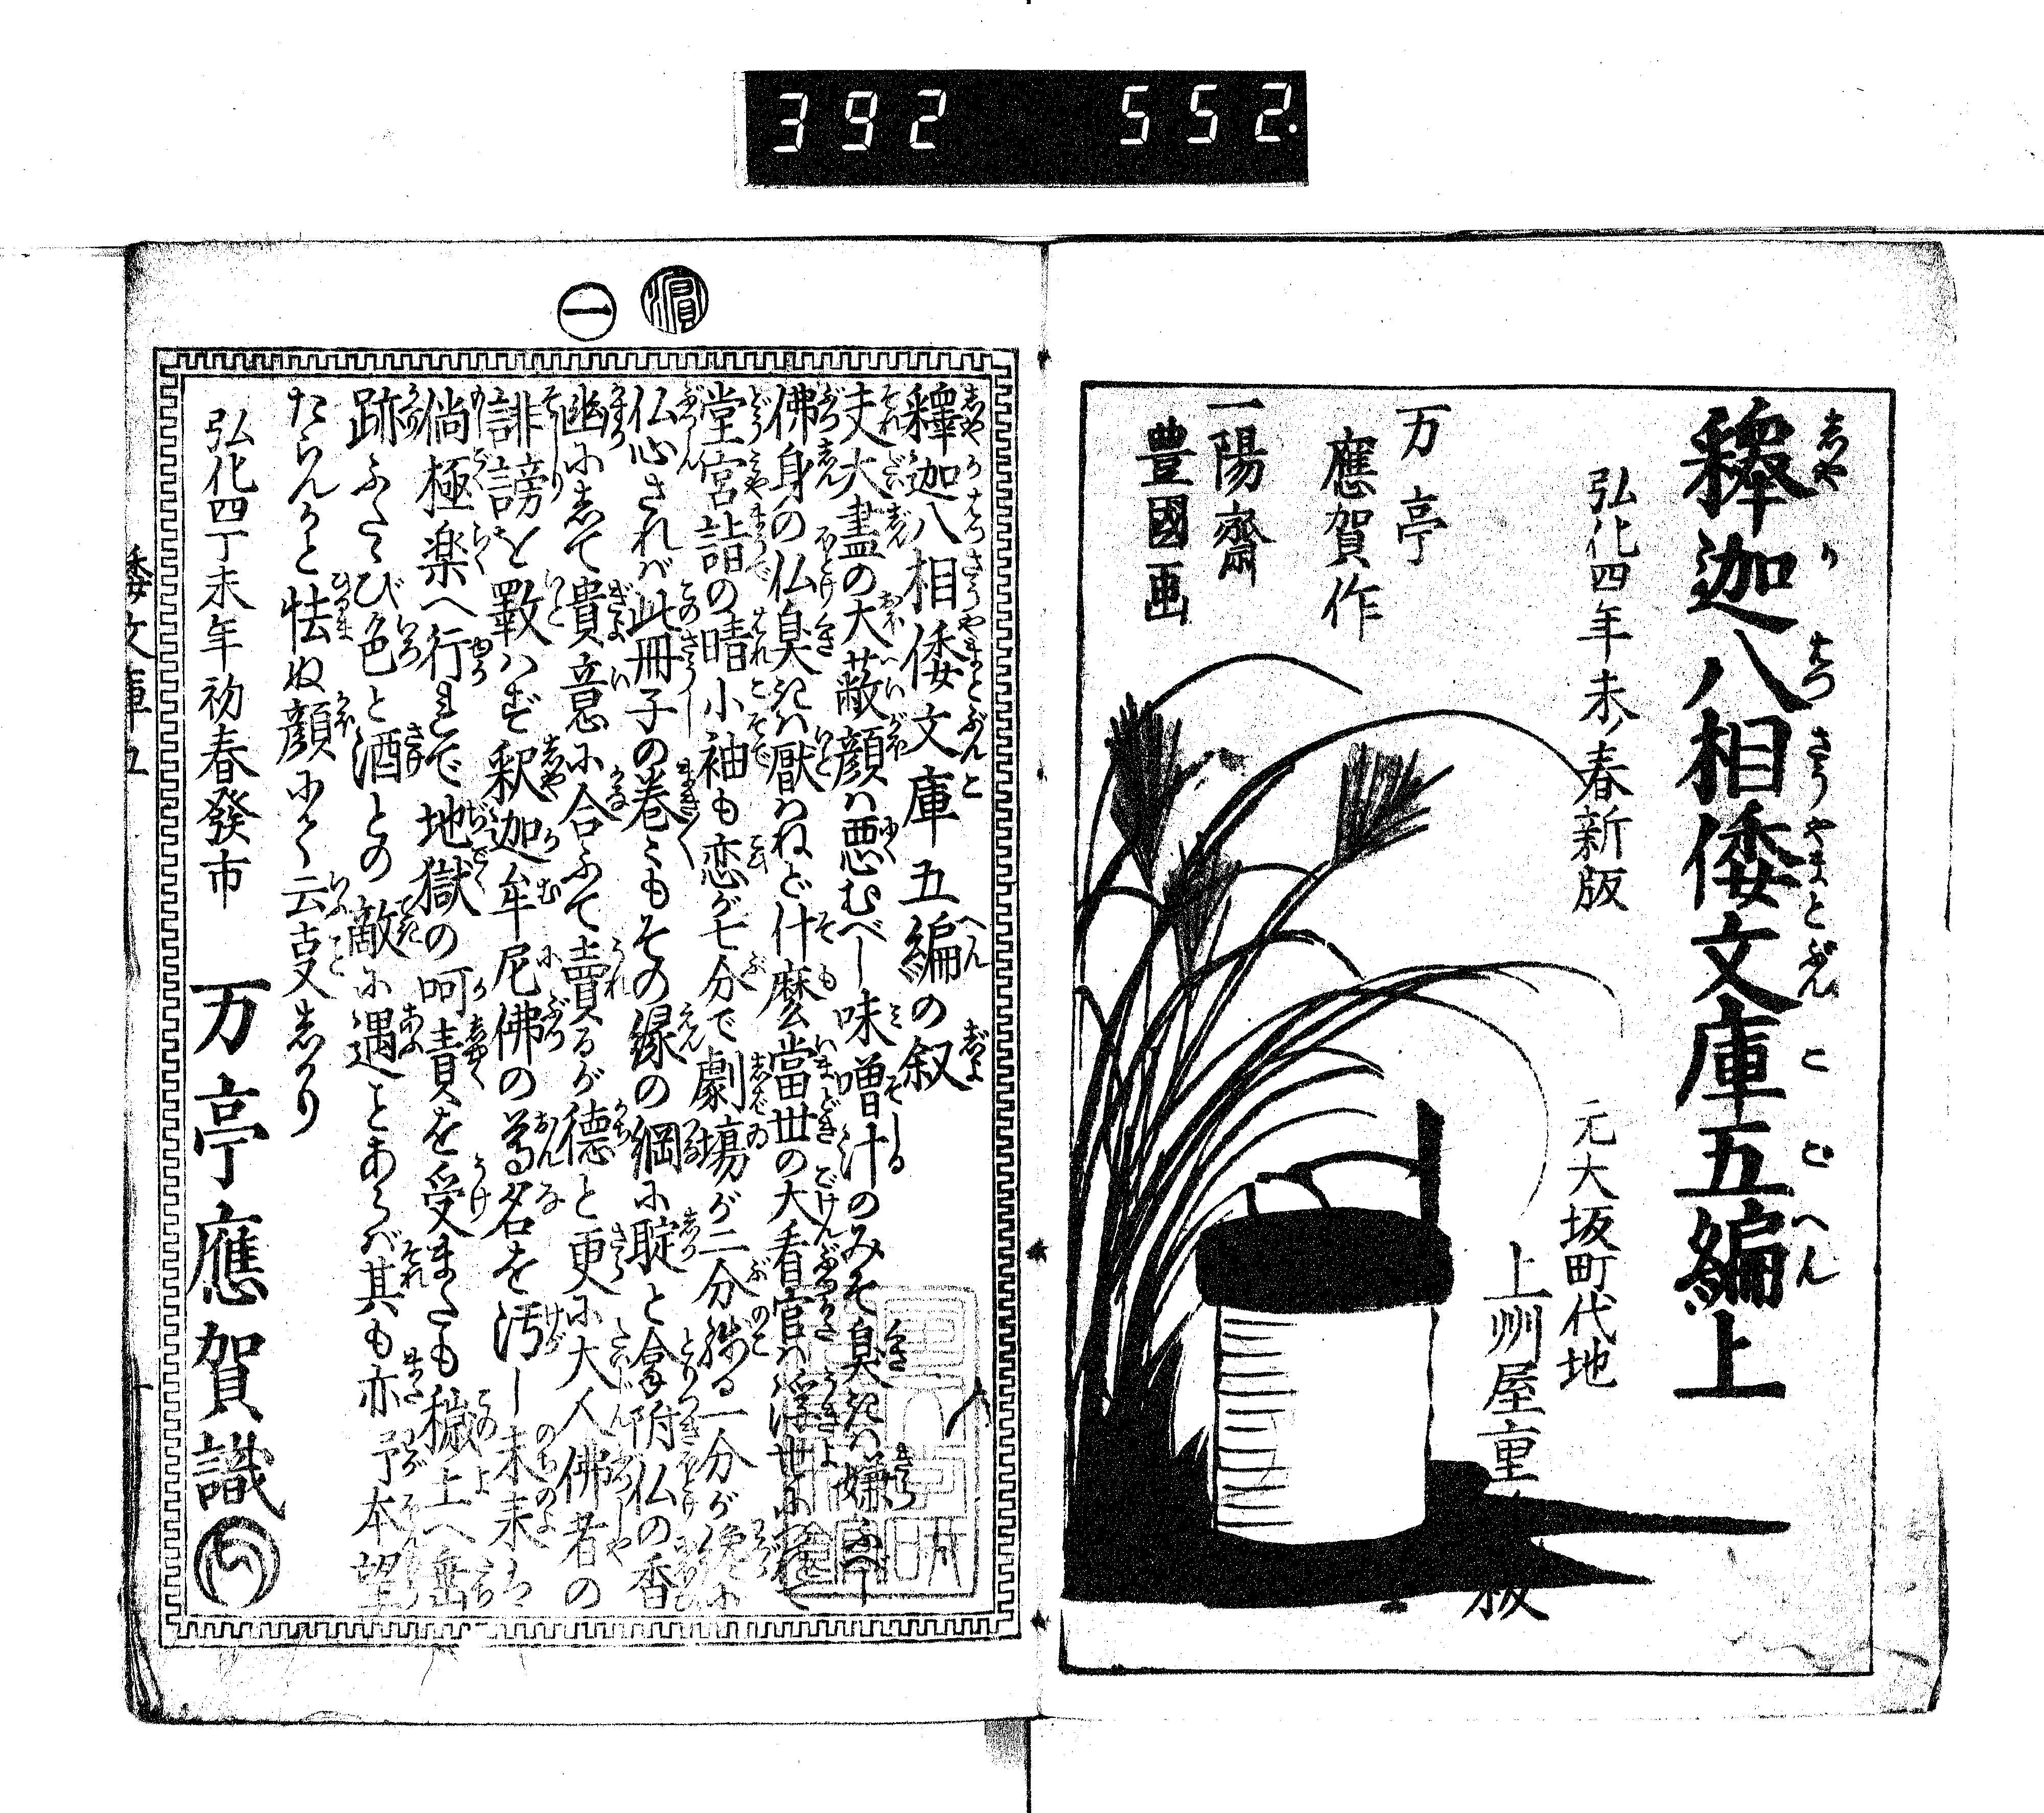 392 552.
釋迦八相倭文庫五編上
しやか はつさうやまとぶんこ ごへん
弘化四年未ノ春新版
元大坂町代地
上州屋重
板
万亭
應賀作
一陽齋
豊國画
濵
一
釋迦八相倭文庫五編の叙
夫大盡の大蔽顔ハ悪むべし味噌汁のみそ臭きハ嫌ふべし
佛身の仏臭きハ厭はねど什麼當世の大看官ハ浮世につれて
堂宮詣の晴小袖も恋が七分で劇場が二分残る一分が
仏心されバ此冊子の巻〻もその縁の綱に
と拿附仏の香
幽にして貴意に合ふて賣るが徳と更に大人佛者の
誹謗を厭ハず釈迦牟尼佛の尊名を汚し未来ハ
倘極楽へ行まで地獄の呵責を受またも穢土へ
跡ふたゝび色と酒との敵に遇ことあらバ其も亦予本望
たらんかと怯ぬ顔にく云爰しかり
弘化四丁未年初春發市
万亭應賀識
倭文庫五